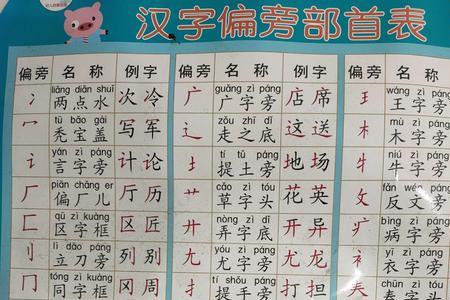 汉字偏旁部首表
偏旁 名称 例字 偏旁 名称 例字 偏旁 名称
liǎng diǎn shuǐ guǎng zì páng wáng zì páng
冫 两点水 次冷 广 广字旁 店席 王 王字旁
tū bǎo gài zǒu zhī dǐ mù zì páng
冖 秃宝盖 写军 辶 走之底 这送 木 木字旁
yán zì páng tí tǔ páng niú zì páng
讠 言字旁 计论 土 提土旁 地场 牛 牛字旁
piān chǎng er cǎo zì tóu fǎn wén páng
厂 偏厂儿 厅历 艹 草字头 花英 攵 反文旁
qū zì kuàng nòng zì dǐ bìng zì páng
匚 区字框 区匠 廾 弄字底 开异 疒 病字旁
lì dāo páng yóu zì páng yī zì páng
刂 立刀旁 列别 尢 尤字旁 尤龙 衤 衣字旁
tóng zì kuàng tí shǒu páng zì tóu
冂 同字框 冈周 扌 提手旁 打担 字头